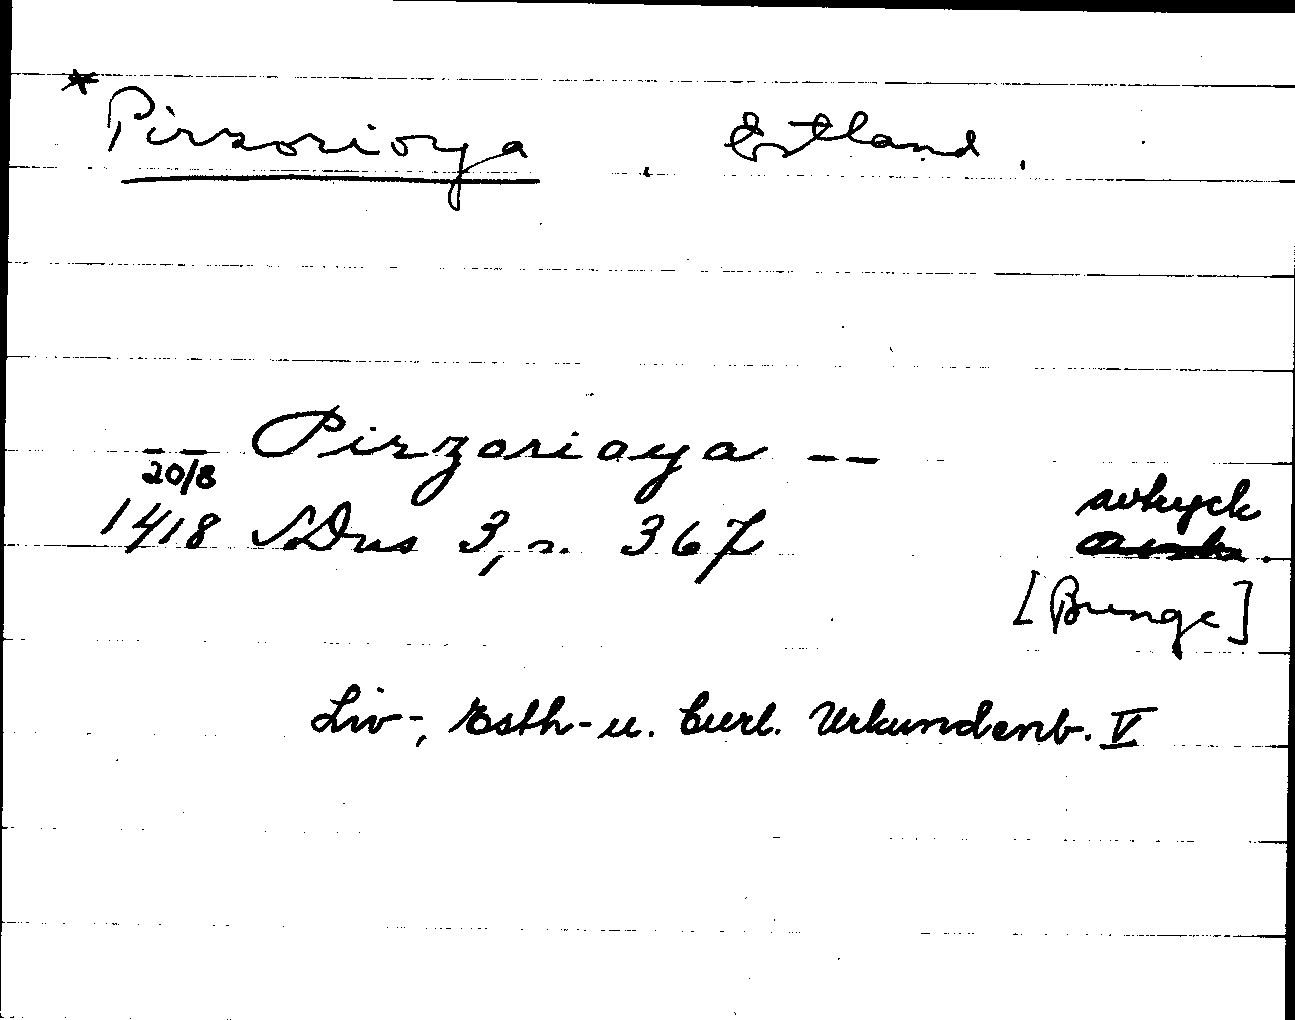 * Pirzorioya, Estland.
Pirzorioya --
20/8
1418 SDns 3, s. 367 avtryck
[Bunge]
Liv-, Esth- u. Curl. Urkundenb. V